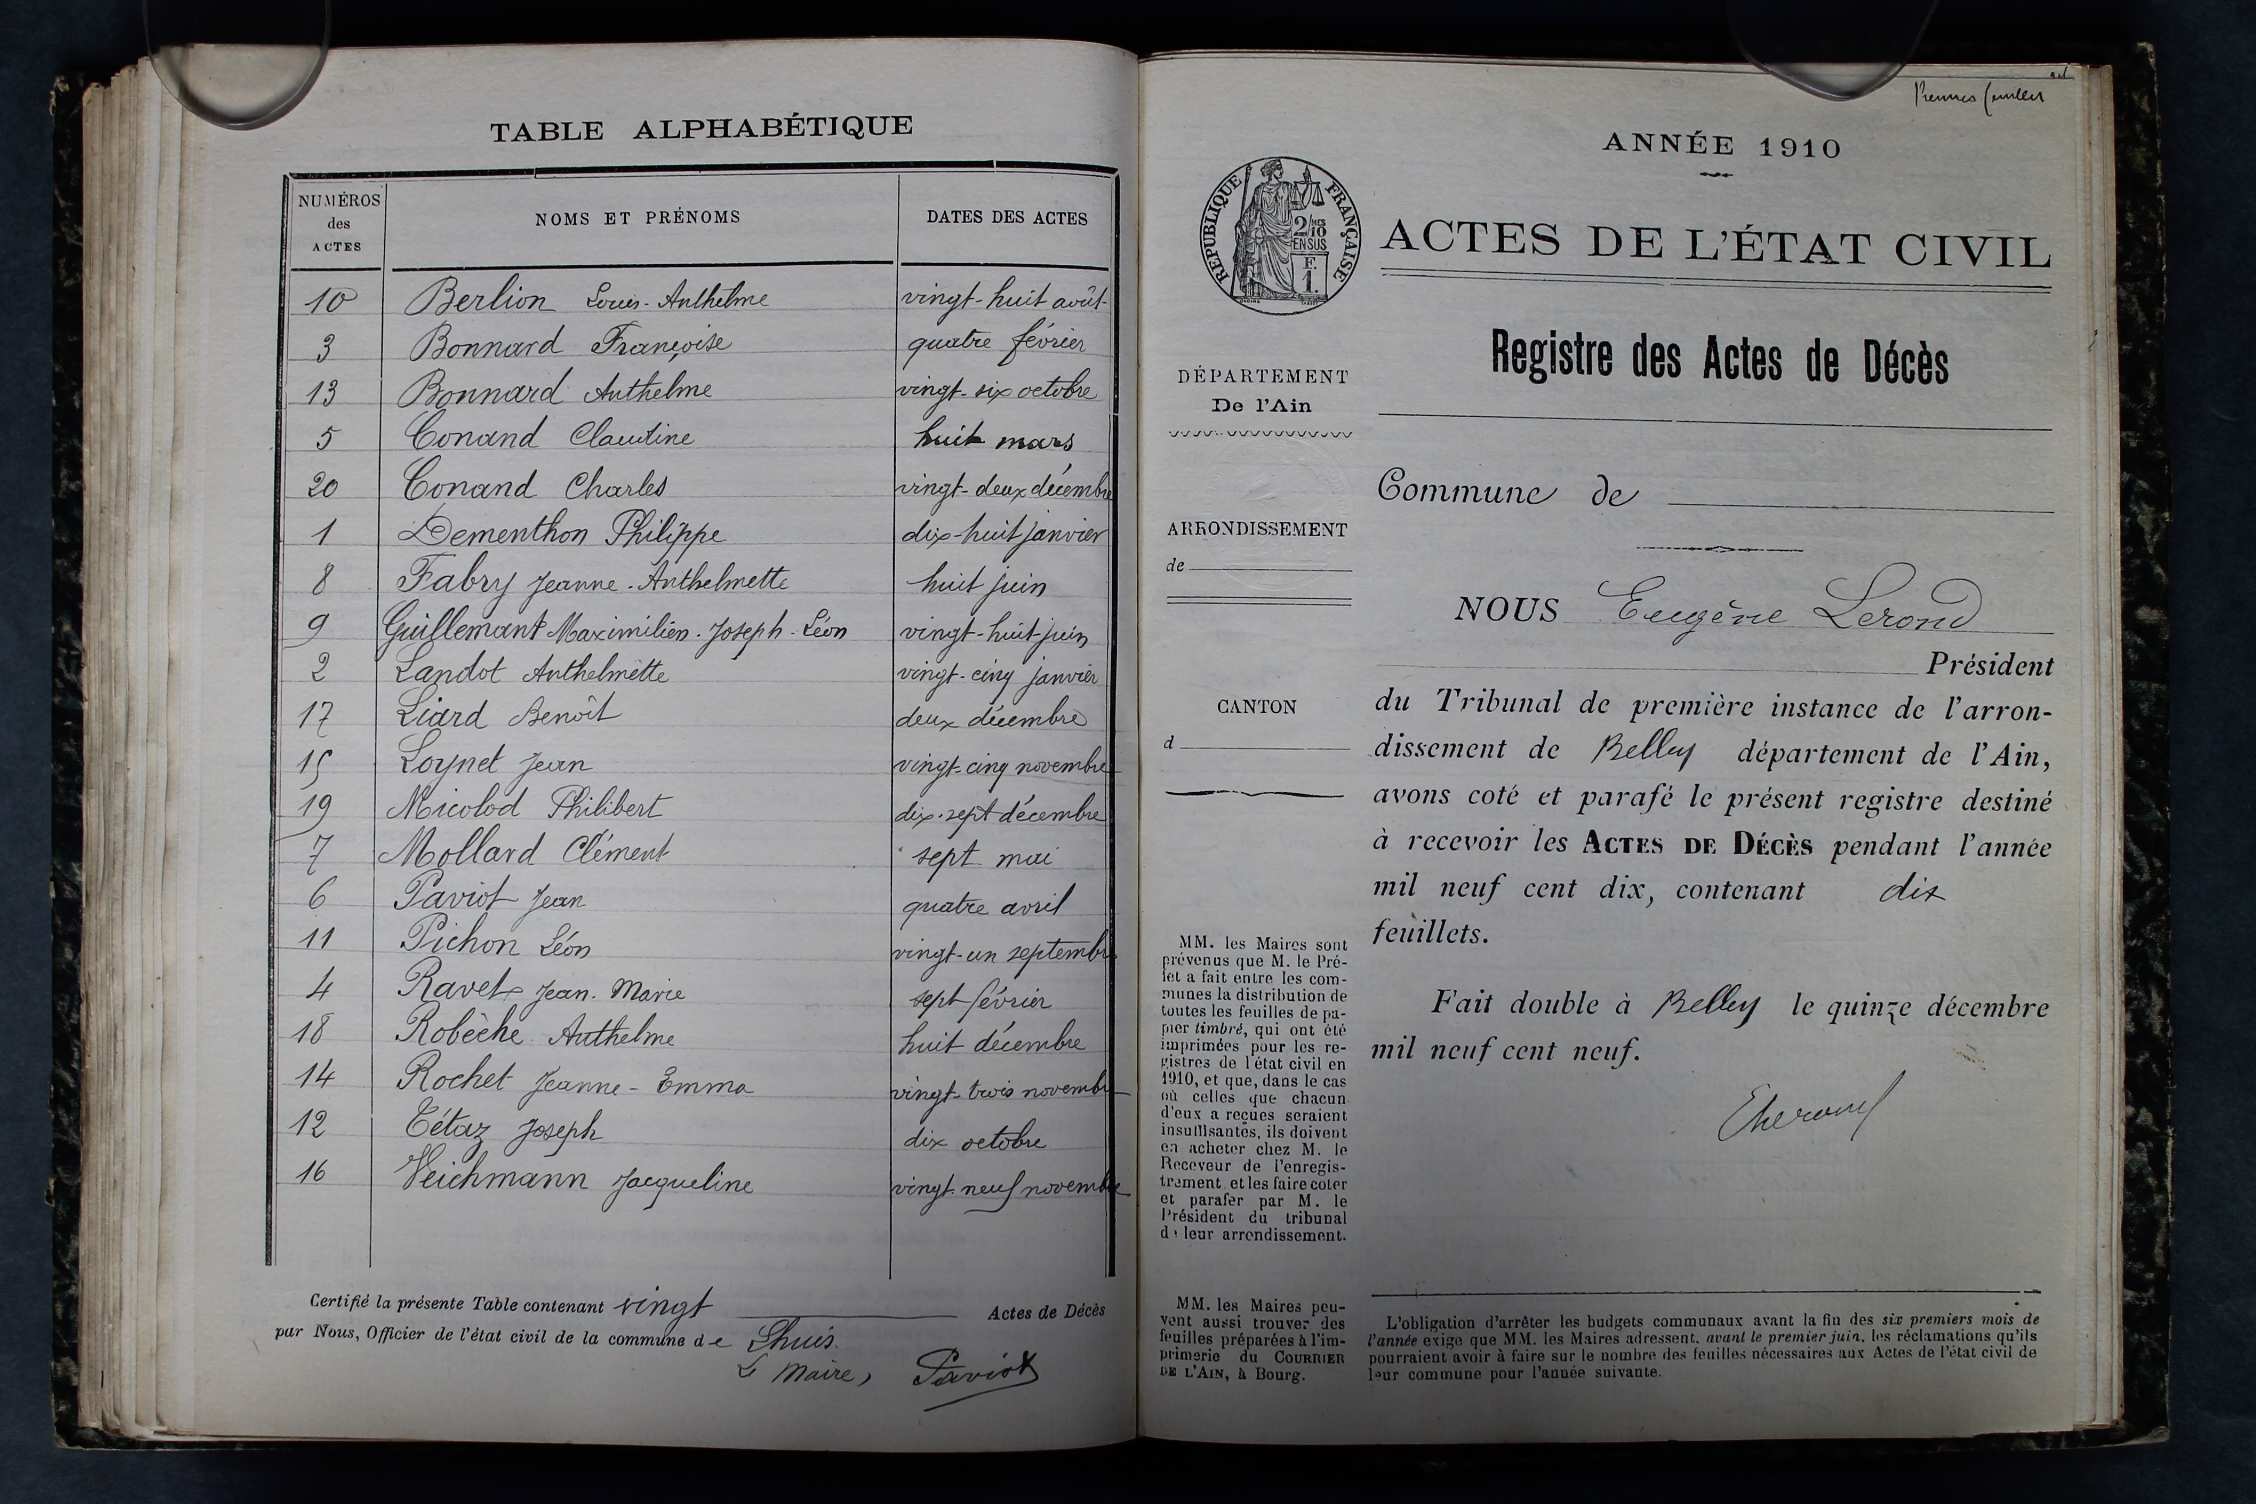 TABLE ALPHABÉTIQUE
NUMÉROS des ACTES NOMS ET PRÉNOMS DATES DES ACTES
10 Berlion Louis-Anthelme vingt-huit août
3 Bonnard Françoise quatre février
13 Bonnard Anthelme vingt-six octobre
5 Conand Claudine huit mars
20 Conand Charles vingt-deux décembre
1 Dementhon Philippe dix-huit janvier
8 Fabry Jeanne-Anthelmette huit juin
9 Guillemant Maximilien-Joseph-Léon vingt-huit juin
2 Landot Anthelmette vingt-cinq janvier
17 Liard Benoît deux décembre
15 Loynet Jean vingt-cinq novembre
19 Micolod Philibert dix-sept décembre
7 Mollard Clément sept mai
6 Paviot Jean quatre avril
11 Pichon Léon vingt-un septembre
4 Ravet Jean-Marie sept février
18 Robèche Anthelme huit décembre
14 Rochet Jeanne-Emma vingt-trois novembre
12 Tétaz Joseph dix octobre
16 Veichmann Jacqueline vingt-neuf novembre
Certifié la présente Table contenant vingt Actes de Décès
par Nous, Officier de l'état civil de la commune de Lhuis.
Le Maire, Paviot
ANNÉE 1910
RÉPUBLIQUE FRANÇAISE
2/10 MES
EN SUS
F.
1.
ACTES DE L'ÉTAT CIVIL
Registre des Actes de Décès
DÉPARTEMENT
De l'Ain
ARRONDISSEMENT
de
CANTON
d
MM. les Maires sont
prévenus que M. le Pré-
fet a fait entre les com-
munes la distribution de
toutes les feuilles de pa-
pier timbré, qui ont été
imprimées pour les re-
gistres de l'état civil en
1910, et que, dans le cas
où celles que chacun
d'eux a reçues seraient
insuffisantes, ils doivent
en acheter chez M. le
Receveur de l'enregis-
trement et les faire coter
et parafer par M. le
Président du tribunal
de leur arrondissement.
MM. les Maires peu-
vent aussi trouver des
feuilles préparées à l'im-
primerie du COURRIER
DE L'AIN, à Bourg.
Commune de
NOUS Eugène Lerond
Président
du Tribunal de première instance de l'arron-
dissement de Belley département de l'Ain,
avons coté et parafé le présent registre destiné
à recevoir les ACTES DE DÉCÈS pendant l'année
mil neuf cent dix, contenant dix
feuillets.
Fait double à Belley le quinze décembre
mil neuf cent neuf.
L'obligation d'arrêter les budgets communaux avant la fin des six premiers mois de
l'année exige que MM. les Maires adressent, avant le premier juin, les réclamations qu'ils
pourraient avoir à faire sur le nombre des feuilles nécessaires aux Actes de l'état civil de
leur commune pour l'année suivante.